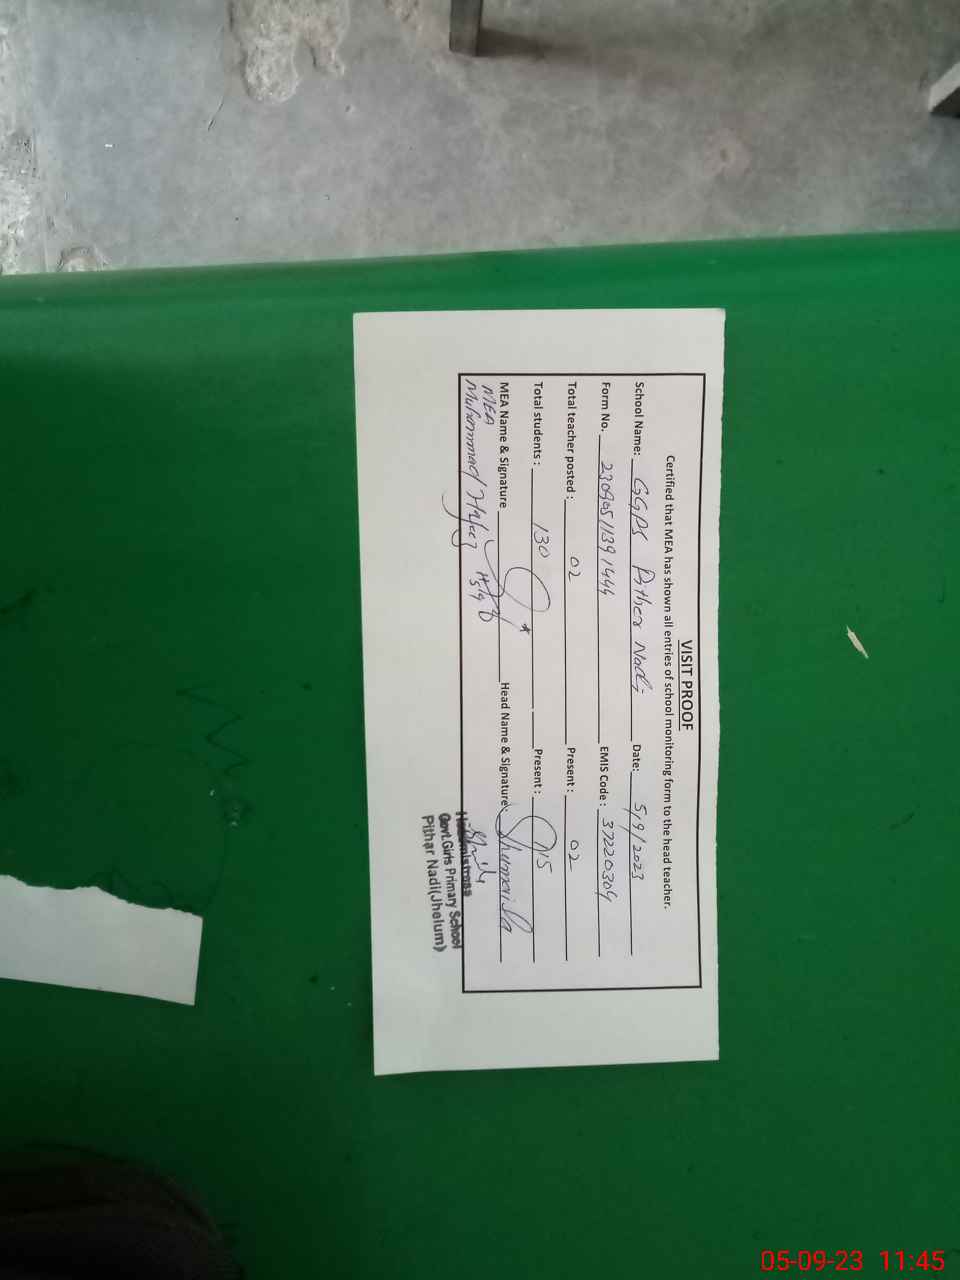 VISIT PROOF
Certified that MEA has shown all entries of school monitoring form to the head teacher.
School Name: GGPS Pither Nadi Date: 5/9/2023
Form No. 23090511391444 EMIS Code : 37220304
Total teacher posted : 02 Present : 02
Total students : 130 Present :
MEA Name & Signature Head Name & Signature: Shumaila
MEA
Muhammad Hafeez
Headmistress
Govt.Girls Primary School
Pithar Nadi(Jhelum)
05-09-23 11:45